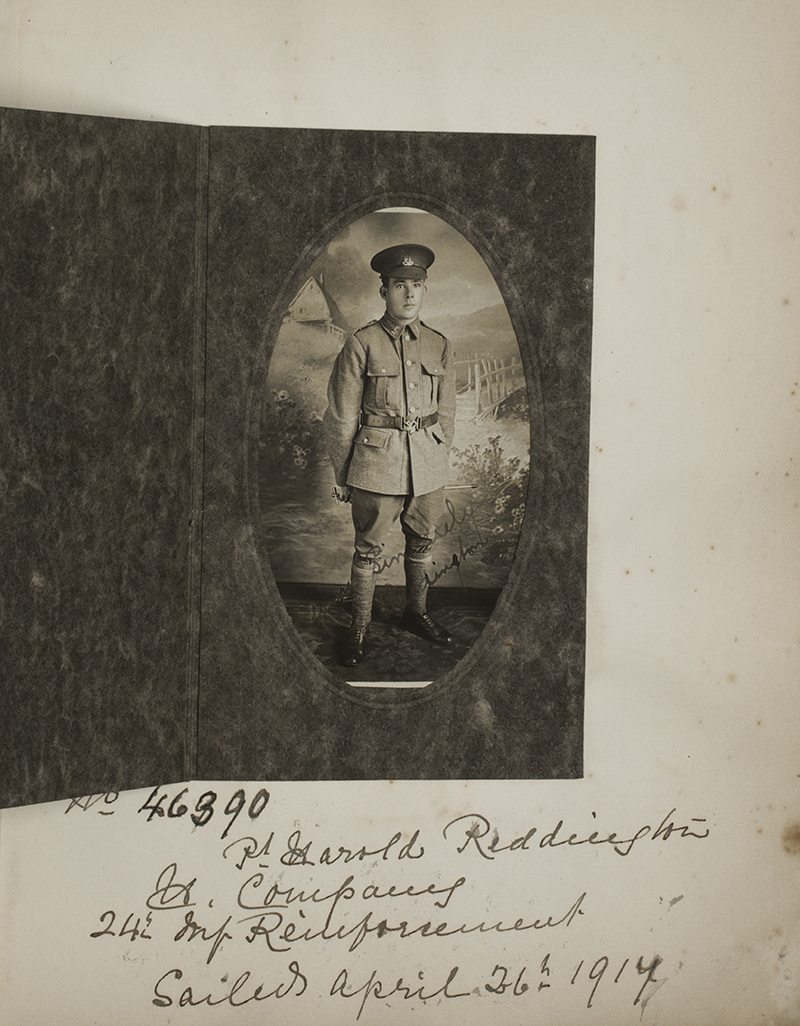 Sincerely
ington
No 46390
Pt Harold Reddington
H. Company
24th Inf Reinforsement
Sailed April 26th 1917